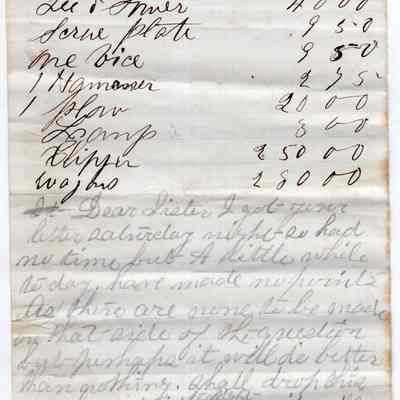 40 00
Scrue plate 9 50
one vice 9 50
1 Hammer 2 75
1 plow 20 00
Lamp 8 00
Klipper 250 00
wagons 280 00
Dear Sister I got your
letter saturday night so had
no time but a little while
to day, have made no points
As there are none to be made
on that side of the question
but perhaps it will do better
than nothing. Shall drop this